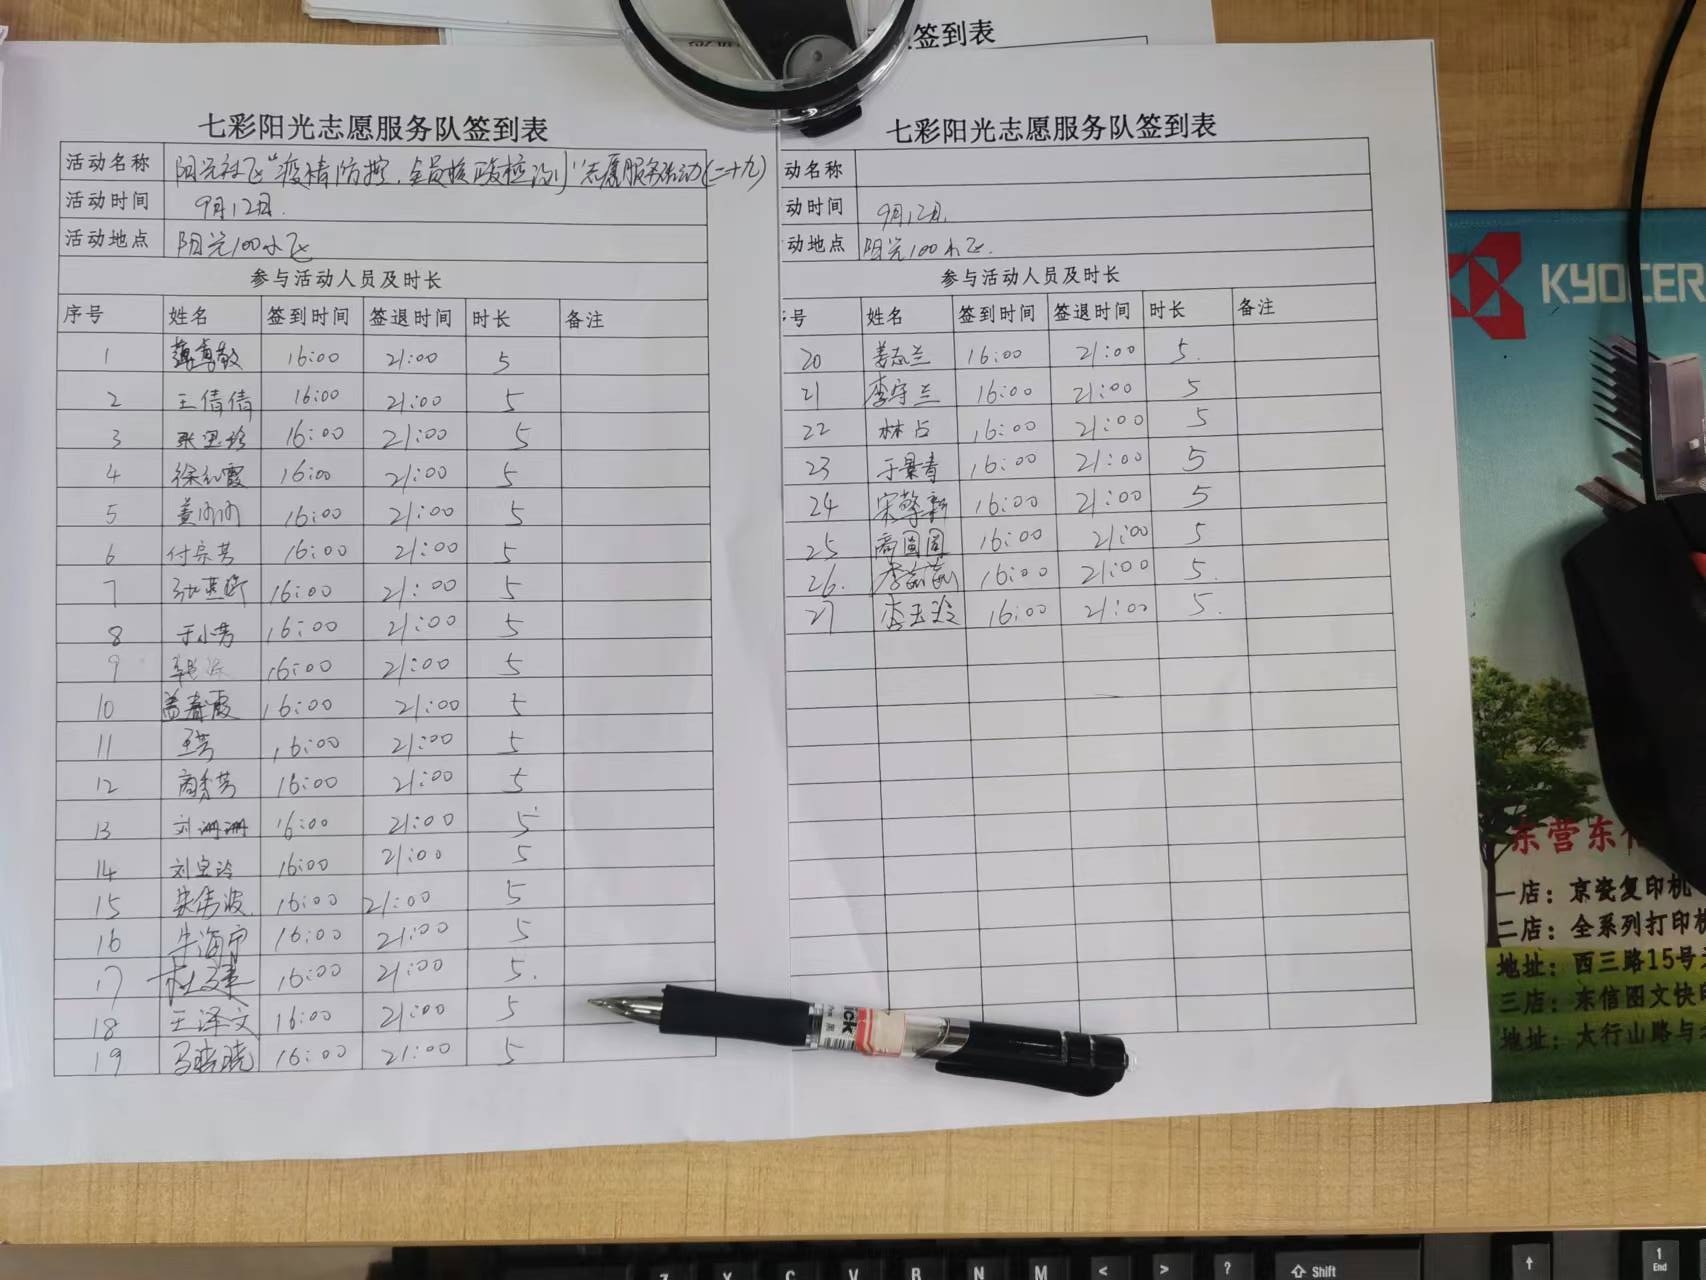 签到表
七彩阳光志愿服务队签到表
活动名称 阳光社区“疫情防控,全员核酸检测”志愿服务活动(二十九)
活动时间 9月12日.
活动地点 阳光100小区
参与活动人员及时长
序号 姓名 签到时间 签退时间 时长 备注
1 16:00 21:00 5
2 王倩倩 16:00 21:00 5
3 16:00 21:00 5
4 徐红霞 16:00 21:00 5
5 16:00 21:00 5
6 付宗芳 16:00 21:00 5
7 16:00 21:00 5
8 于小芳 16:00 21:00 5
9 16:00 21:00 5
10 盖春霞 16:00 21:00 5
11 王芳 16:00 21:00 5
12 商秀芳 16:00 21:00 5
13 刘珊珊 16:00 21:00 5
14 刘宝玲 16:00 21:00 5
15 16:00 21:00 5
16 牛海宁 16:00 21:00 5
17 16:00 21:00 5.
18 王泽文 16:00 21:00 5
19 16:00 21:00 5
七彩阳光志愿服务队签到表
动名称
动时间 9月12日.
动地点 阳光100小区.
参与活动人员及时长
号 姓名 签到时间 签退时间 时长 备注
20 姜志兰 16:00 21:00 5.
21 李守兰 16:00 21:00 5
22 林占 16:00 21:00 5
23 于景青 16:00 21:00 5
24 宋擎新 16:00 21:00 5
25 商圆圆 16:00 21:00 5
26. 16:00 21:00 5.
27 李玉玲 16:00 21:00 5.
KYOCER
东营东
一店：京瓷复印机
二店：全系列打印机
地址：西三路15号
三店：东信图文快印
地址：太行山路与
Z X C V B N M < > ? ⇧ Shift ↑ 1 End